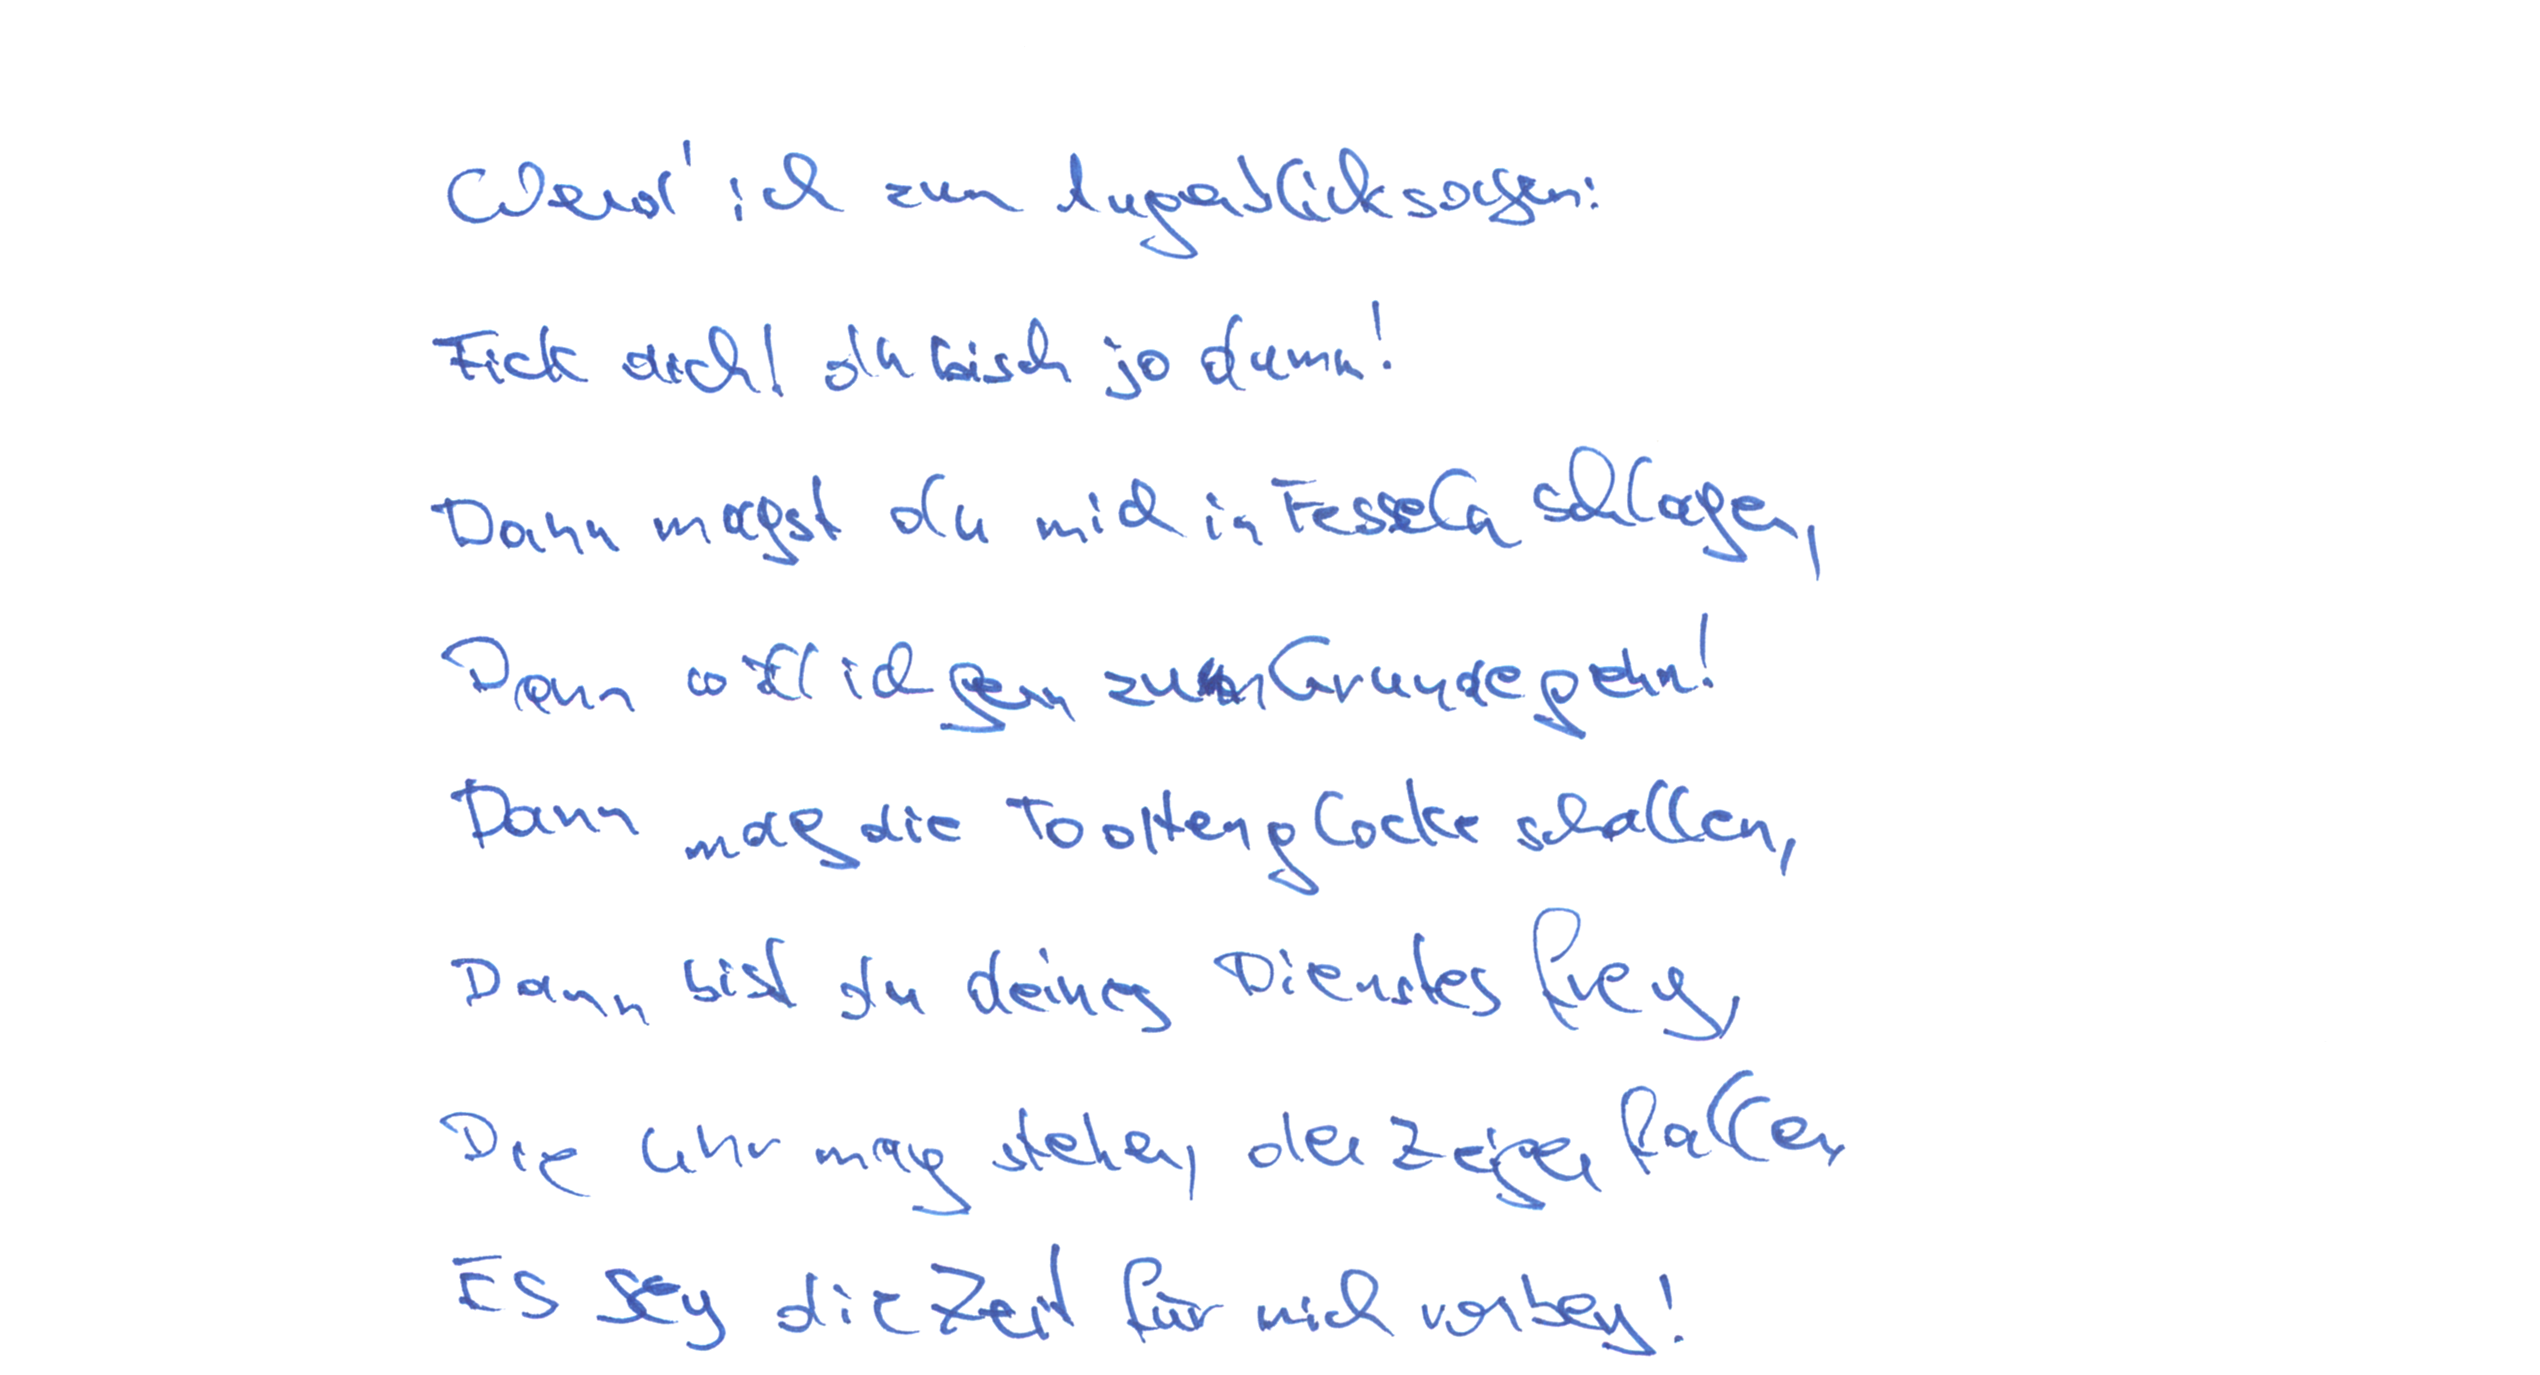 Werd' ich zum Augenblick sagen:
Fick dich! du bisch jo dumm!
Dann magst du mich in Fesseln schlagen,
Dann will ich gern zum Grunde gehn!
Dann mag die Todtenglocke schallen,
Dann bist du deines Dienstes frey,
Die Uhr mag stehen, der Zeiger fallen
Es sey die Zeit für mich vorbey!